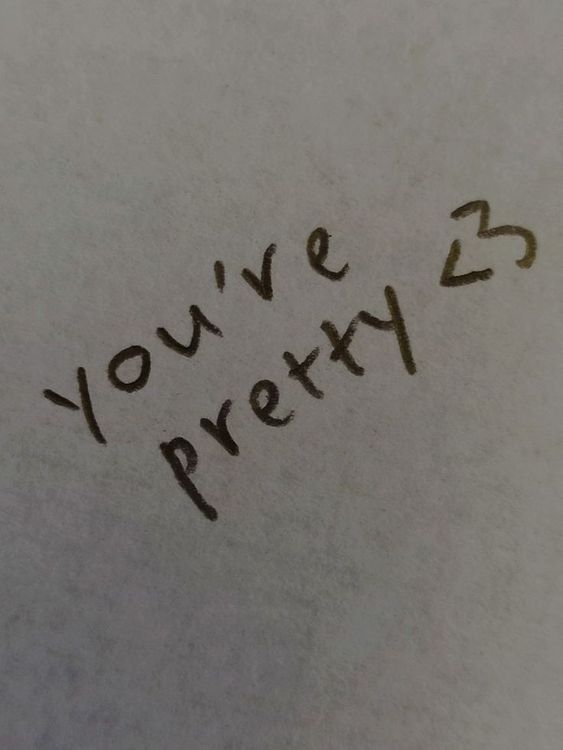 you're
pretty <3